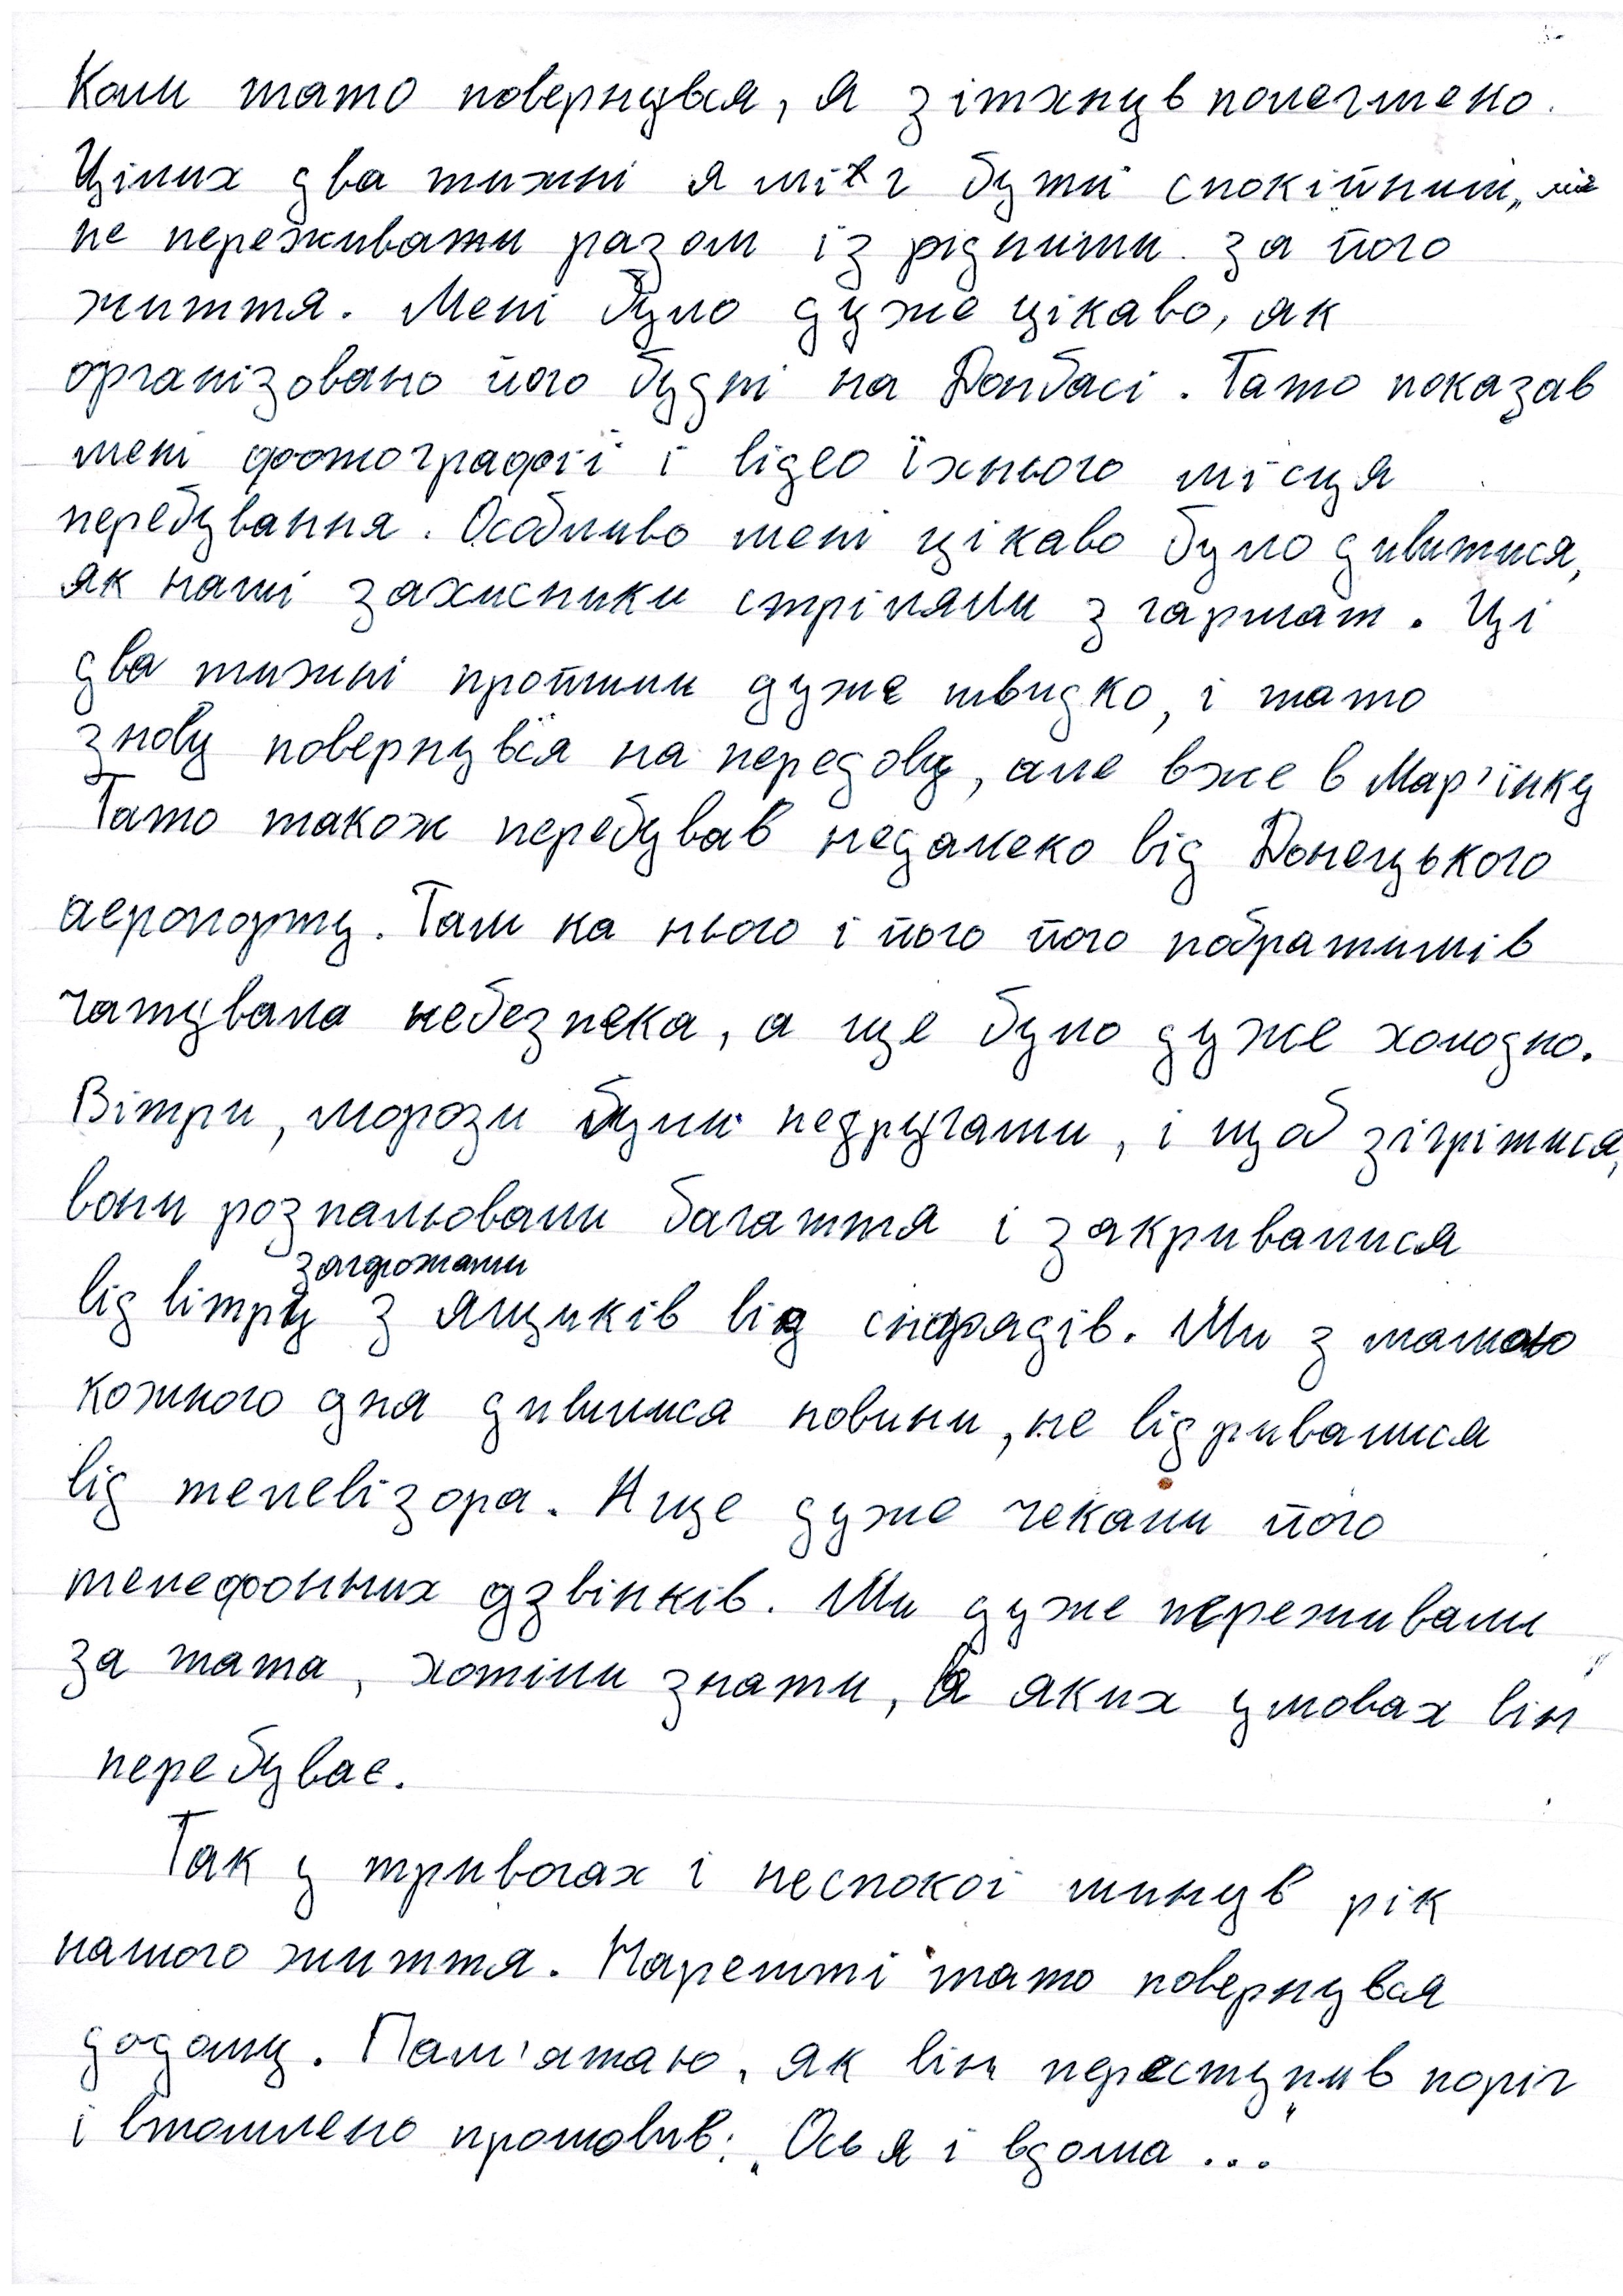 Коли тато повернувся, я зітхнув полегшено.
Цілих два тижні я міг бути спокійним,
не переживати разом із рідними за його
життя. Мені було дуже цікаво, як
організовано його будні на Донбасі. Тато показав
мені фотографії і відео їхнього місця
перебування. Особливо мені цікаво було дивитися,
як наші захисники стріляли з гармат. Ці
два тижні пройшли дуже швидко, і тато
знову повернувся на передову, але вже в Мар'їнку
Тато також перебував недалеко від Донецького
аеропорту. Там на нього і його його побратимів
чатувала небезпека, а ще було дуже холодно.
Вітри, морози були недругами, і щоб зігрітися,
вони розпалювали багаття і закривалися
загорожами
від вітру з ящиків від снарядів. Ми з мамою
кожного дня дивилися новини, не відривалися
від телевізора. А ще дуже чекали його
телефонних дзвінків. Ми дуже переживали
за тата, хотіли знати, в яких умовах він
перебуває.
Так у тривогах і неспокої минув рік
нашого життя. Нарешті тато повернувся
додому. Пам'ятаю, як він переступив поріг
і втомлено промовив: „Ось я і вдома..."